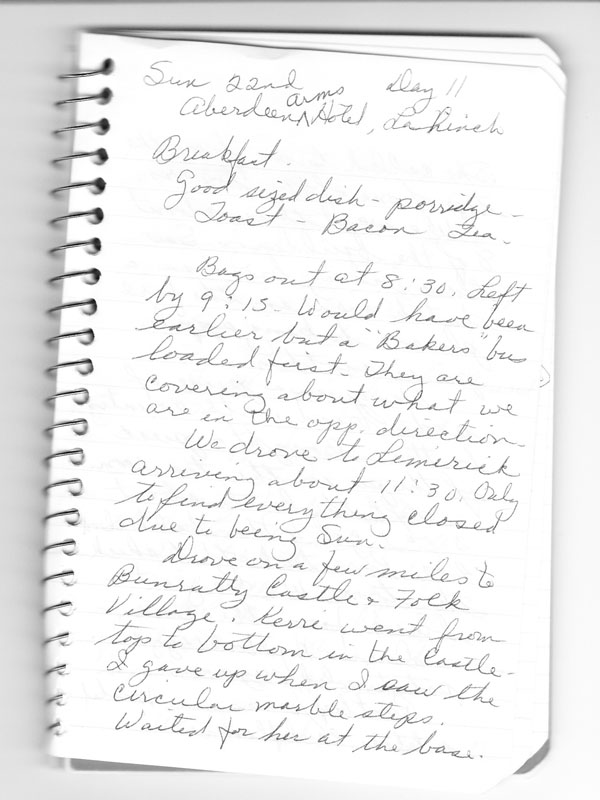 Sun 22nd Day 11
Aberdeen arms Hotel, LaHinch
Breakfast.
Good sized dish - porridge -
Toast - Bacon Tea.
Bags out at 8:30. Left
by 9:15. Would have been
earlier but a "Bakers" bus
loaded first. They are
covering about what we
are in the opp. direction.
We drove to Limerick
arriving about 11:30. Only
to find everything closed
due to being Sun.
Drove on a few miles to
Bunratty Castle & Folk
Village. Kerri went from
top to bottom in the Castle.
I gave up when I saw the
circular marble steps.
Waited for her at the base.